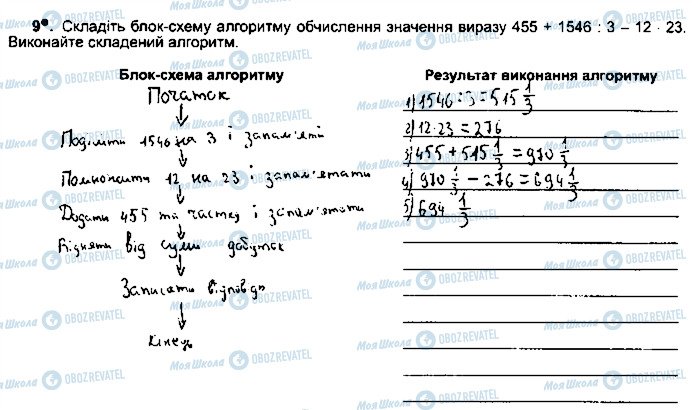 9•. Складіть блок-схему алгоритму обчислення значення виразу 455 + 1546 : 3 – 12 · 23.
Виконайте складений алгоритм.
Блок-схема алгоритму
Початок
Поділити 1546 на 3 і запам'яті
Помножити 12 на 23 і запам'ятати
Додати 455 та частку і запам'ятати
Відняти від суми добуток
Записати відповідь
Кінець
Результат виконання алгоритму
1) 1546 : 3 = 515 1/3
2) 12·23 = 276
3) 455 + 515 1/3 = 970 1/3
4) 970 1/3 – 276 = 694 1/3
5) 694 1/3
Моя Школа OBOZREVATEL